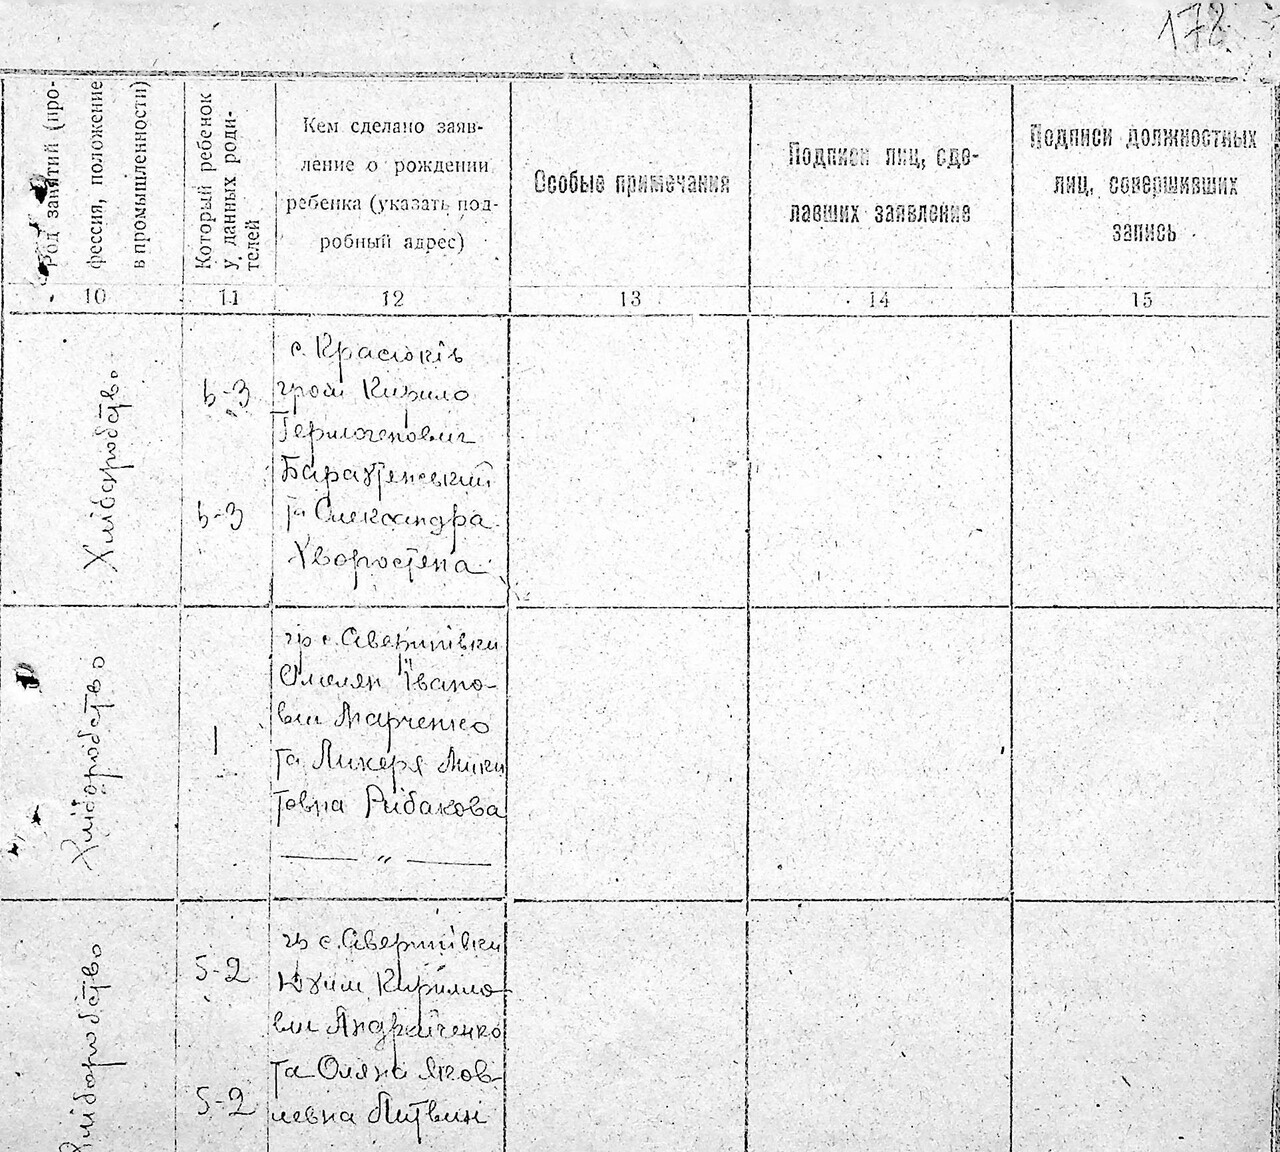 178
Род занятий (про-
фессия, положение
в промышленности)
Который ребенок
у данных роди-
телей
Кем сделано заяв-
ление о рождении
ребенка (указать под-
робный адрес)
Особые примечания
Подписи лиц, сде-
лавших заявление
Подписи должностных
лиц, совершивших
запись
10
11
12
13
14
15
Хліборобство
5-3
5-3
с. Красюків
гром Кирило
Гермогенович
та Олександра
Хворостена
Хліборобство
1
гр с. Аверинівки
Омелян Івано-
вич Марченко
та Ликеря Мики
товна Рибакова
— " —
Хліборобство
5-2
5-2
гр с. Аверинівки
Юхим Кирило-
вич Андрейченко
та Оляна Яков-
левна Литвин